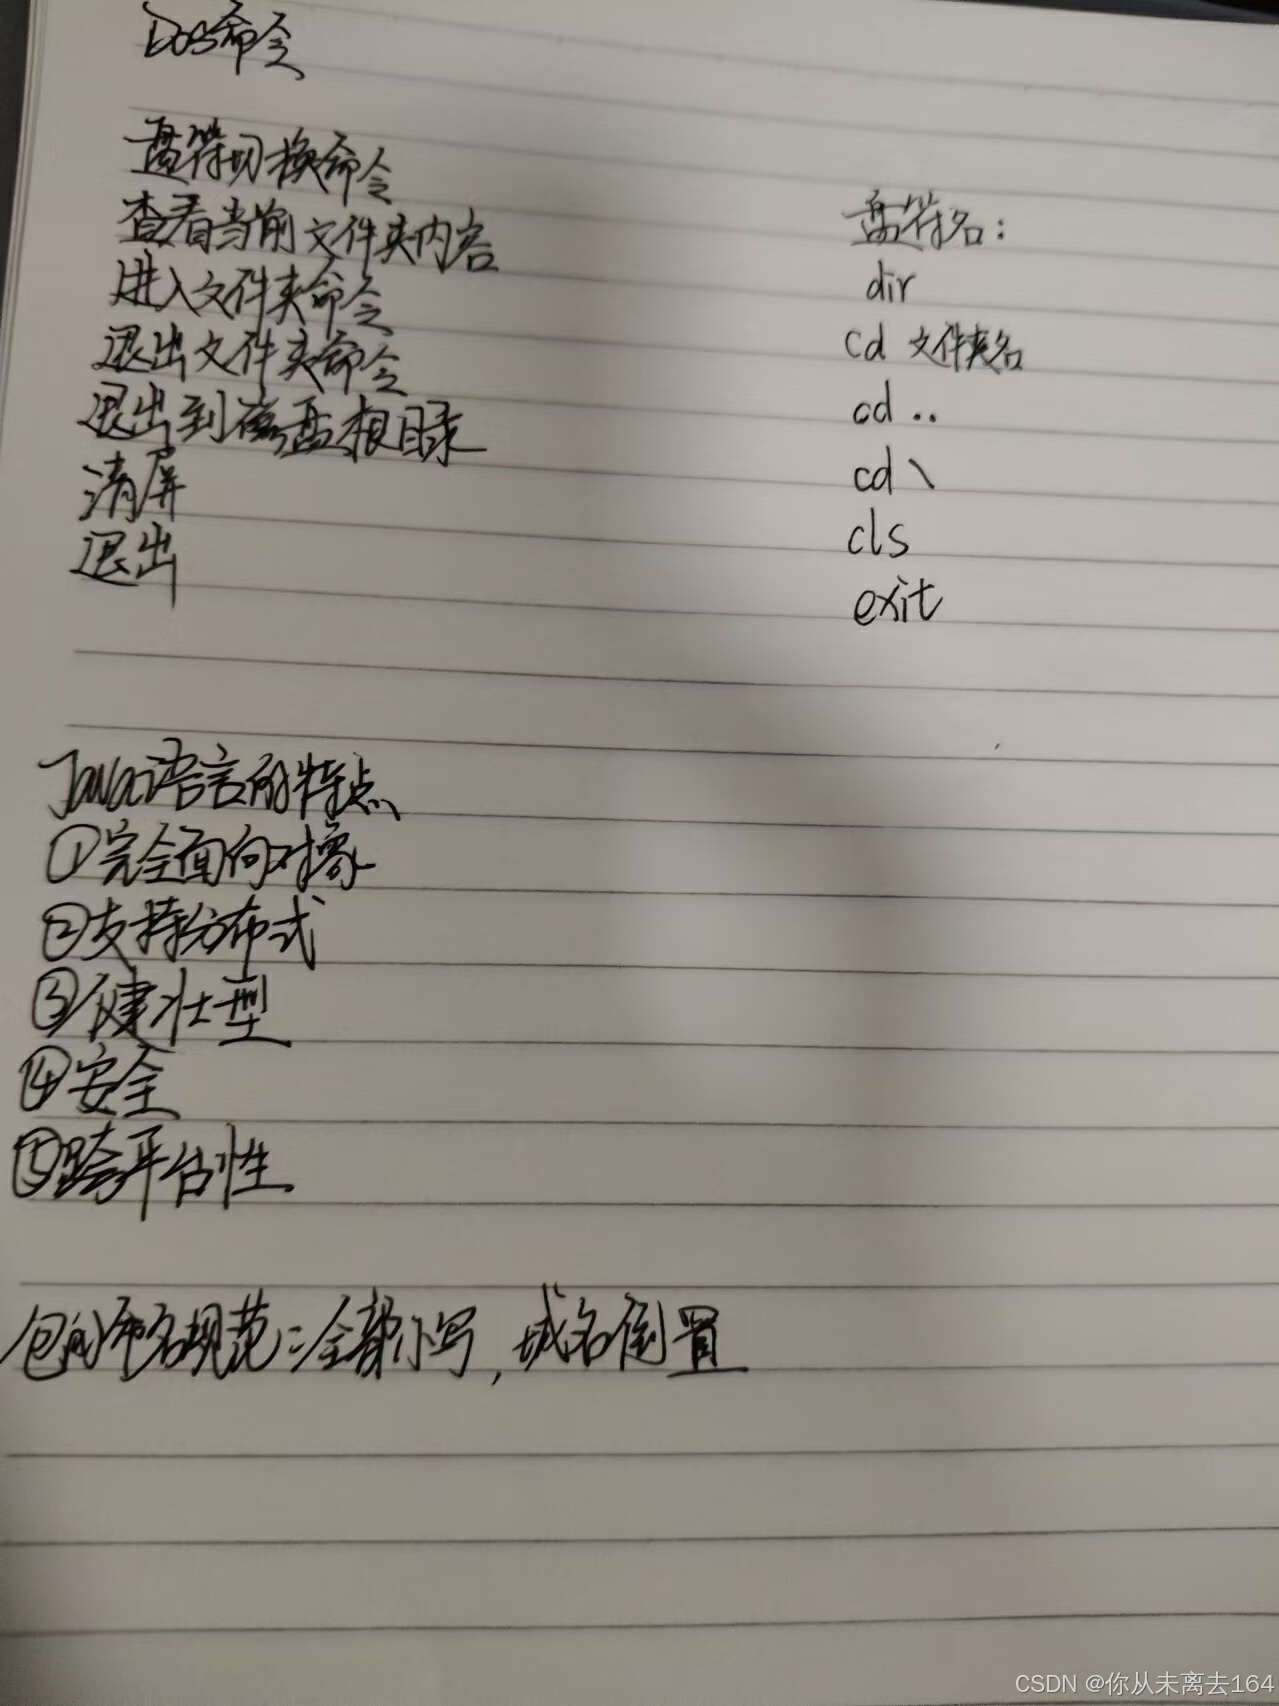 Dos命令
盘符切换命令
盘符名:
查看当前文件夹内容
dir
进入文件夹命令
cd 文件夹名
退出文件夹命令
cd ..
退出到磁盘根目录
cd \
清屏
cls
退出
exit
Java语言的特点
①完全面向对象
②支持分布式
③健壮型
④安全
⑤跨平台性
包的命名规范:全部小写,域名倒置
CSDN @你从未离去164